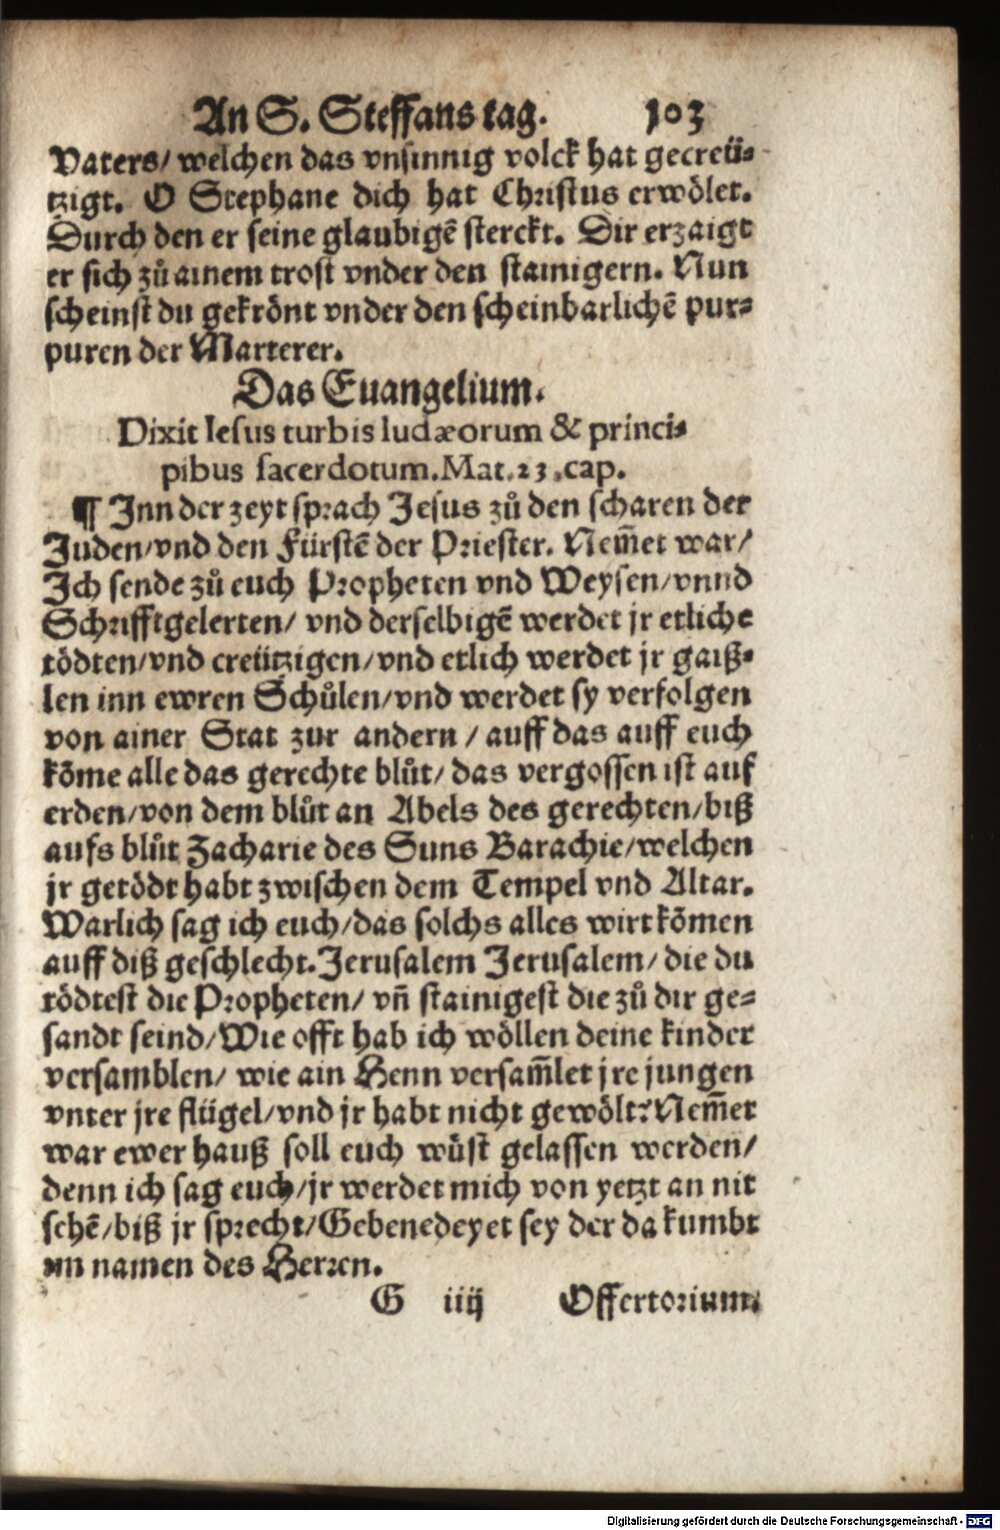 An S. Steffans tag. 103
Vaters/ welchen das vnsinnig volck hat gecreü-
tzigt. O Stephane dich hat Christus erwölet.
Durch den er seine glaubigẽ sterckt. Dir erzaigt
er sich zů ainem trost vnder den stainigern. Nun
scheinst du gekrönt vnder den scheinbarlichẽ pur-
puren der Marterer.
Das Euangelium.
Dixit Iesus turbis Iudæorum & princi-
pibus sacerdotum. Mat. 23. cap.
¶ Inn der zeyt sprach Jesus zů den scharen der
Juden/vnd den Fürstẽ der Priester. Nem̃et war/
Ich sende zů euch Propheten vnd Weysen/vnnd
Schrifftgelerten/ vnd derselbigẽ werdet jr etliche
tödten/vnd creützigen/vnd etlich werdet jr gaiß-
len inn ewren Schůlen/vnd werdet sy verfolgen
von ainer Stat zur andern / auff das auff euch
kõme alle das gerechte blůt/ das vergossen ist auf
erden/von dem blůt an Abels des gerechten/biß
aufs blůt Zacharie des Suns Barachie/welchen
jr getödt habt zwischen dem Tempel vnd Altar.
Warlich sag ich euch/das solchs alles wirt kõmen
auff diß geschlecht. Jerusalem Jerusalem/ die du
tödtest die Propheten/ vñ stainigest die zů dir ge-
sandt seind/Wie offt hab ich wöllen deine kinder
versamblen/ wie ain Henn versam̃let jre jungen
vnter jre flügel/vnd jr habt nicht gewölt? Nem̃et
war ewer hauß soll euch wüst gelassen werden/
denn ich sag euch/jr werdet mich von yetzt an nit
sehẽ/biß jr sprecht/Gebenedeyet sey der da kumbt
im namen des Herren.
G iiij Offertorium.
Digitalisierung gefördert durch die Deutsche Forschungsgemeinschaft - DFG